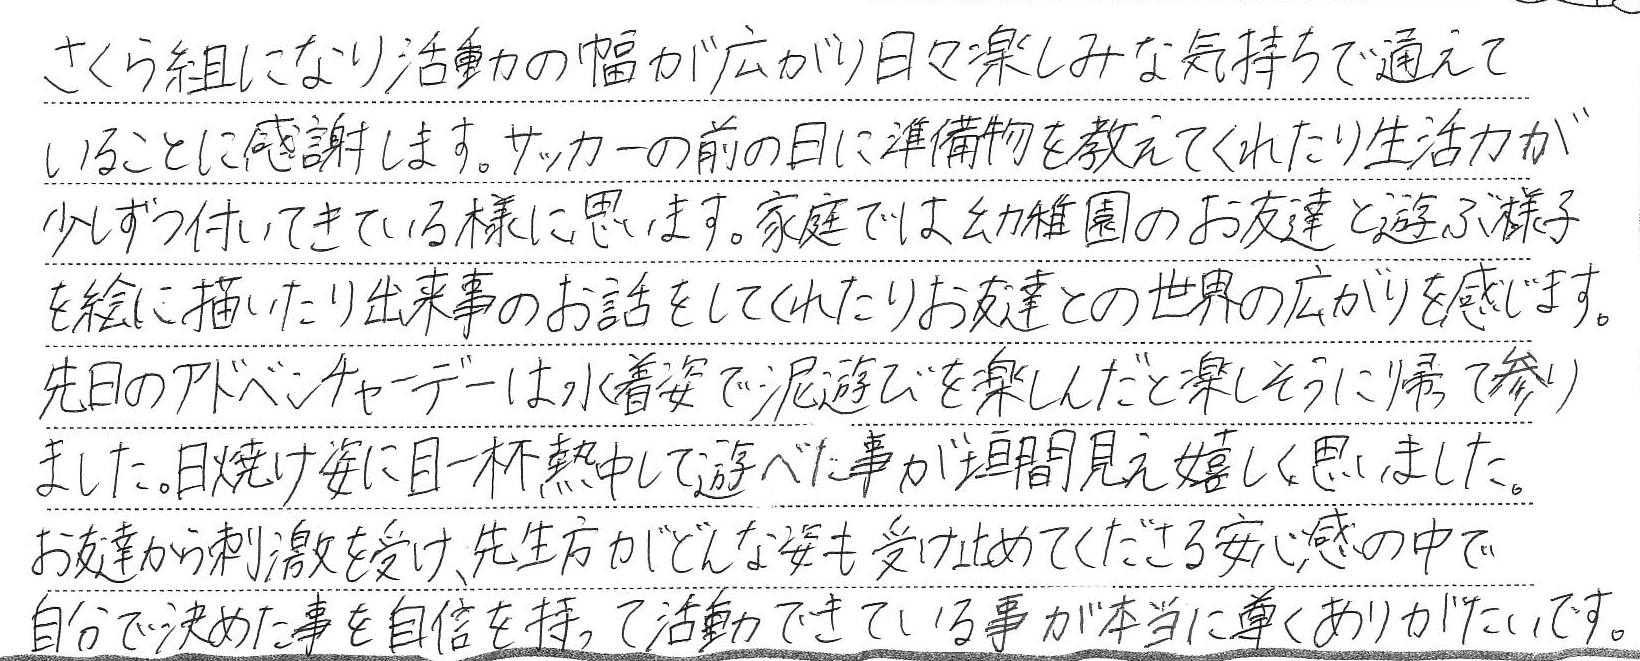 さくら組になり活動の幅が広がり日々楽しみな気持ちで通えて
いることに感謝します。サッカーの前の日に準備物を教えてくれたり生活力が
少しずつ付いてきている様に思います。家庭では幼稚園のお友達と遊ぶ様子
を絵に描いたり出来事のお話をしてくれたりお友達との世界の広がりを感じます。
先日のアドベンチャーデーは水着姿で泥遊びを楽しんだと楽しそうに帰って参り
ました。日焼け姿に目一杯熱中して遊べた事が垣間見え嬉しく思いました。
お友達から刺激を受け、先生方がどんな姿も受け止めてくださる安心感の中で
自分で決めた事を自信を持って活動できている事が本当に尊くありがたいです。